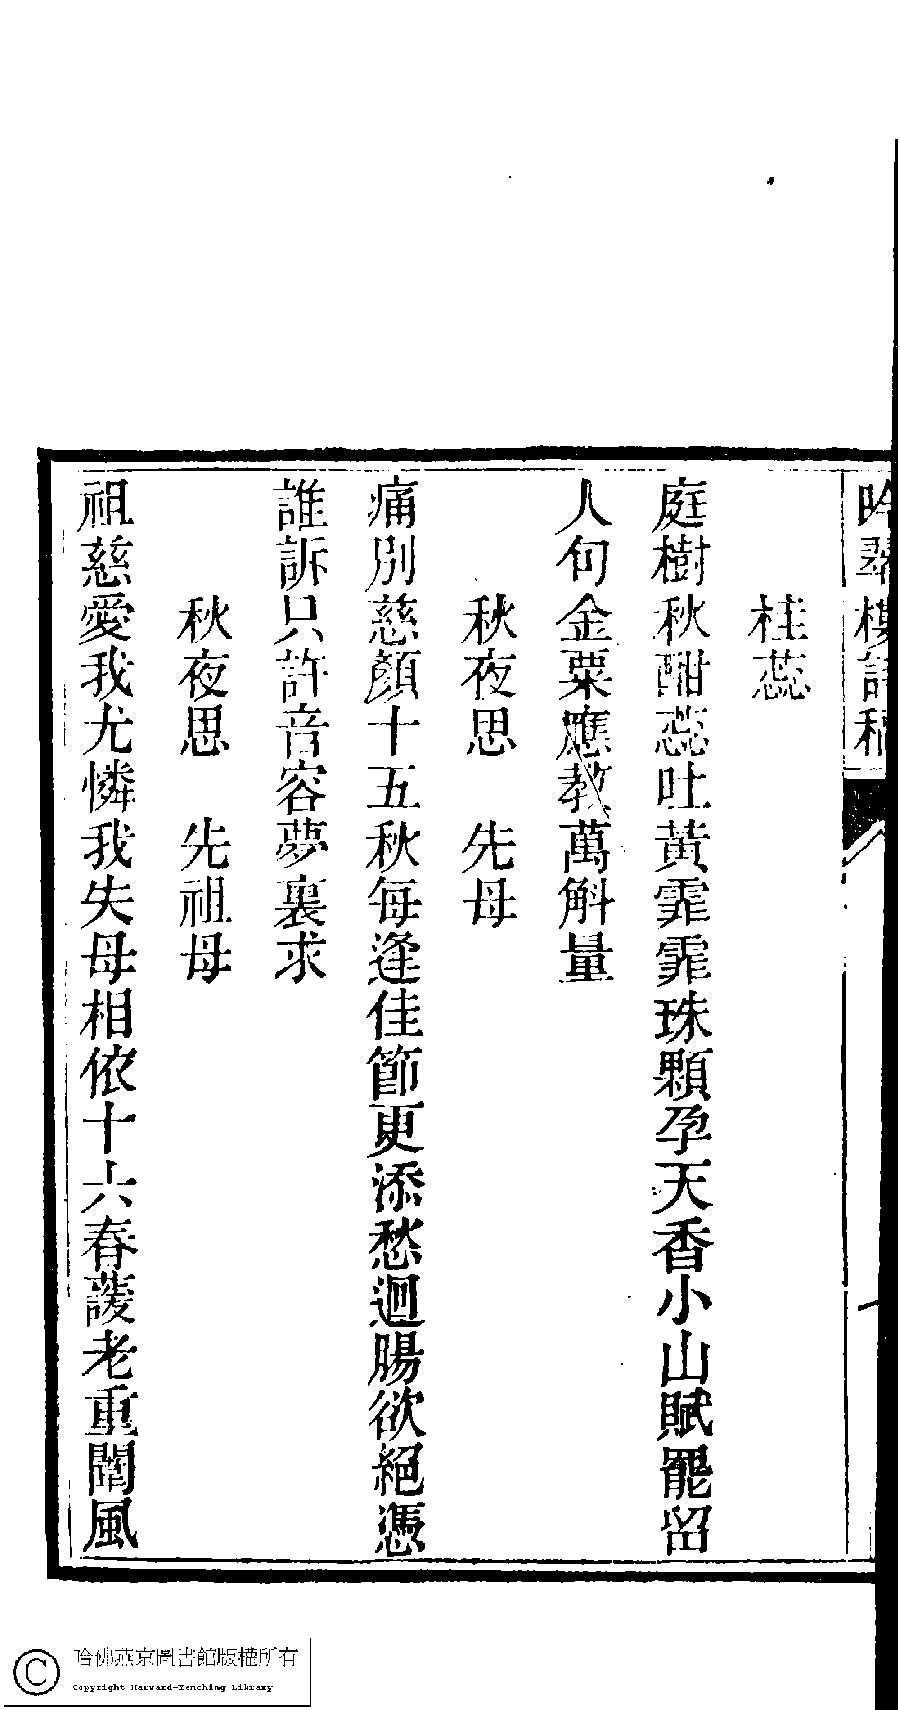 吟翠樓詩稿
桂蕊
庭樹秋酣蕊吐黃霏霏珠顆孕天香小山賦罷留
人句金粟應教萬斛量
秋夜思　先母
痛別慈顏十五秋每逢佳節更添愁迴腸欲絕憑
誰訴只許音容夢裏求
秋夜思　先祖母
祖慈愛我尤憐我失母相依十六春諼老重闈風
哈佛燕京圖書館版權所有
Copyright Harvard-Yenching Library